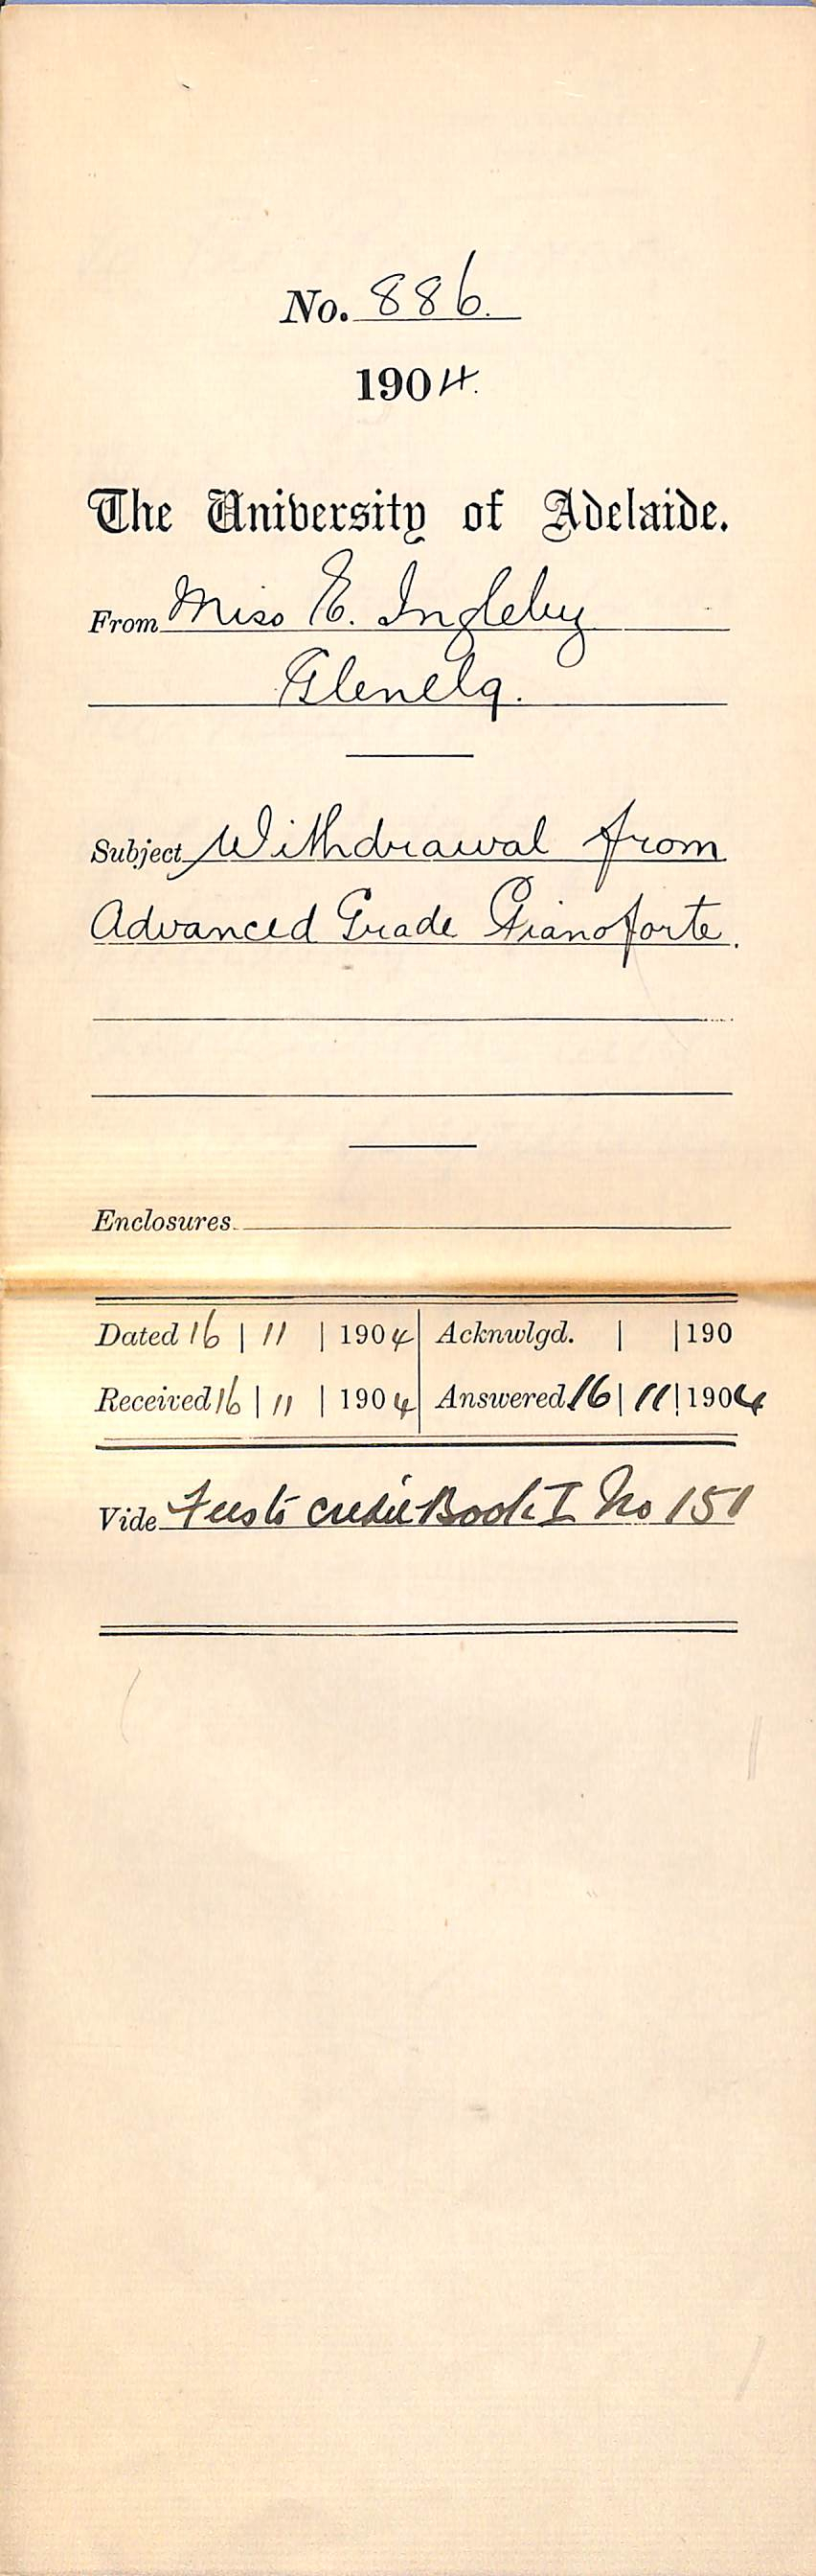 No. 886.
1904.
The University of Adelaide.
From Miss E. Ingleby
Glenelg.
Subject Withdrawal from
Advanced Grade Pianoforte.
Enclosures
Dated 16 | 11 | 1904 Acknwlgd. | | 190
Received 16 | 11 | 1904 Answered 16 | 11 | 1904
Vide Fees to credit Book I No 151